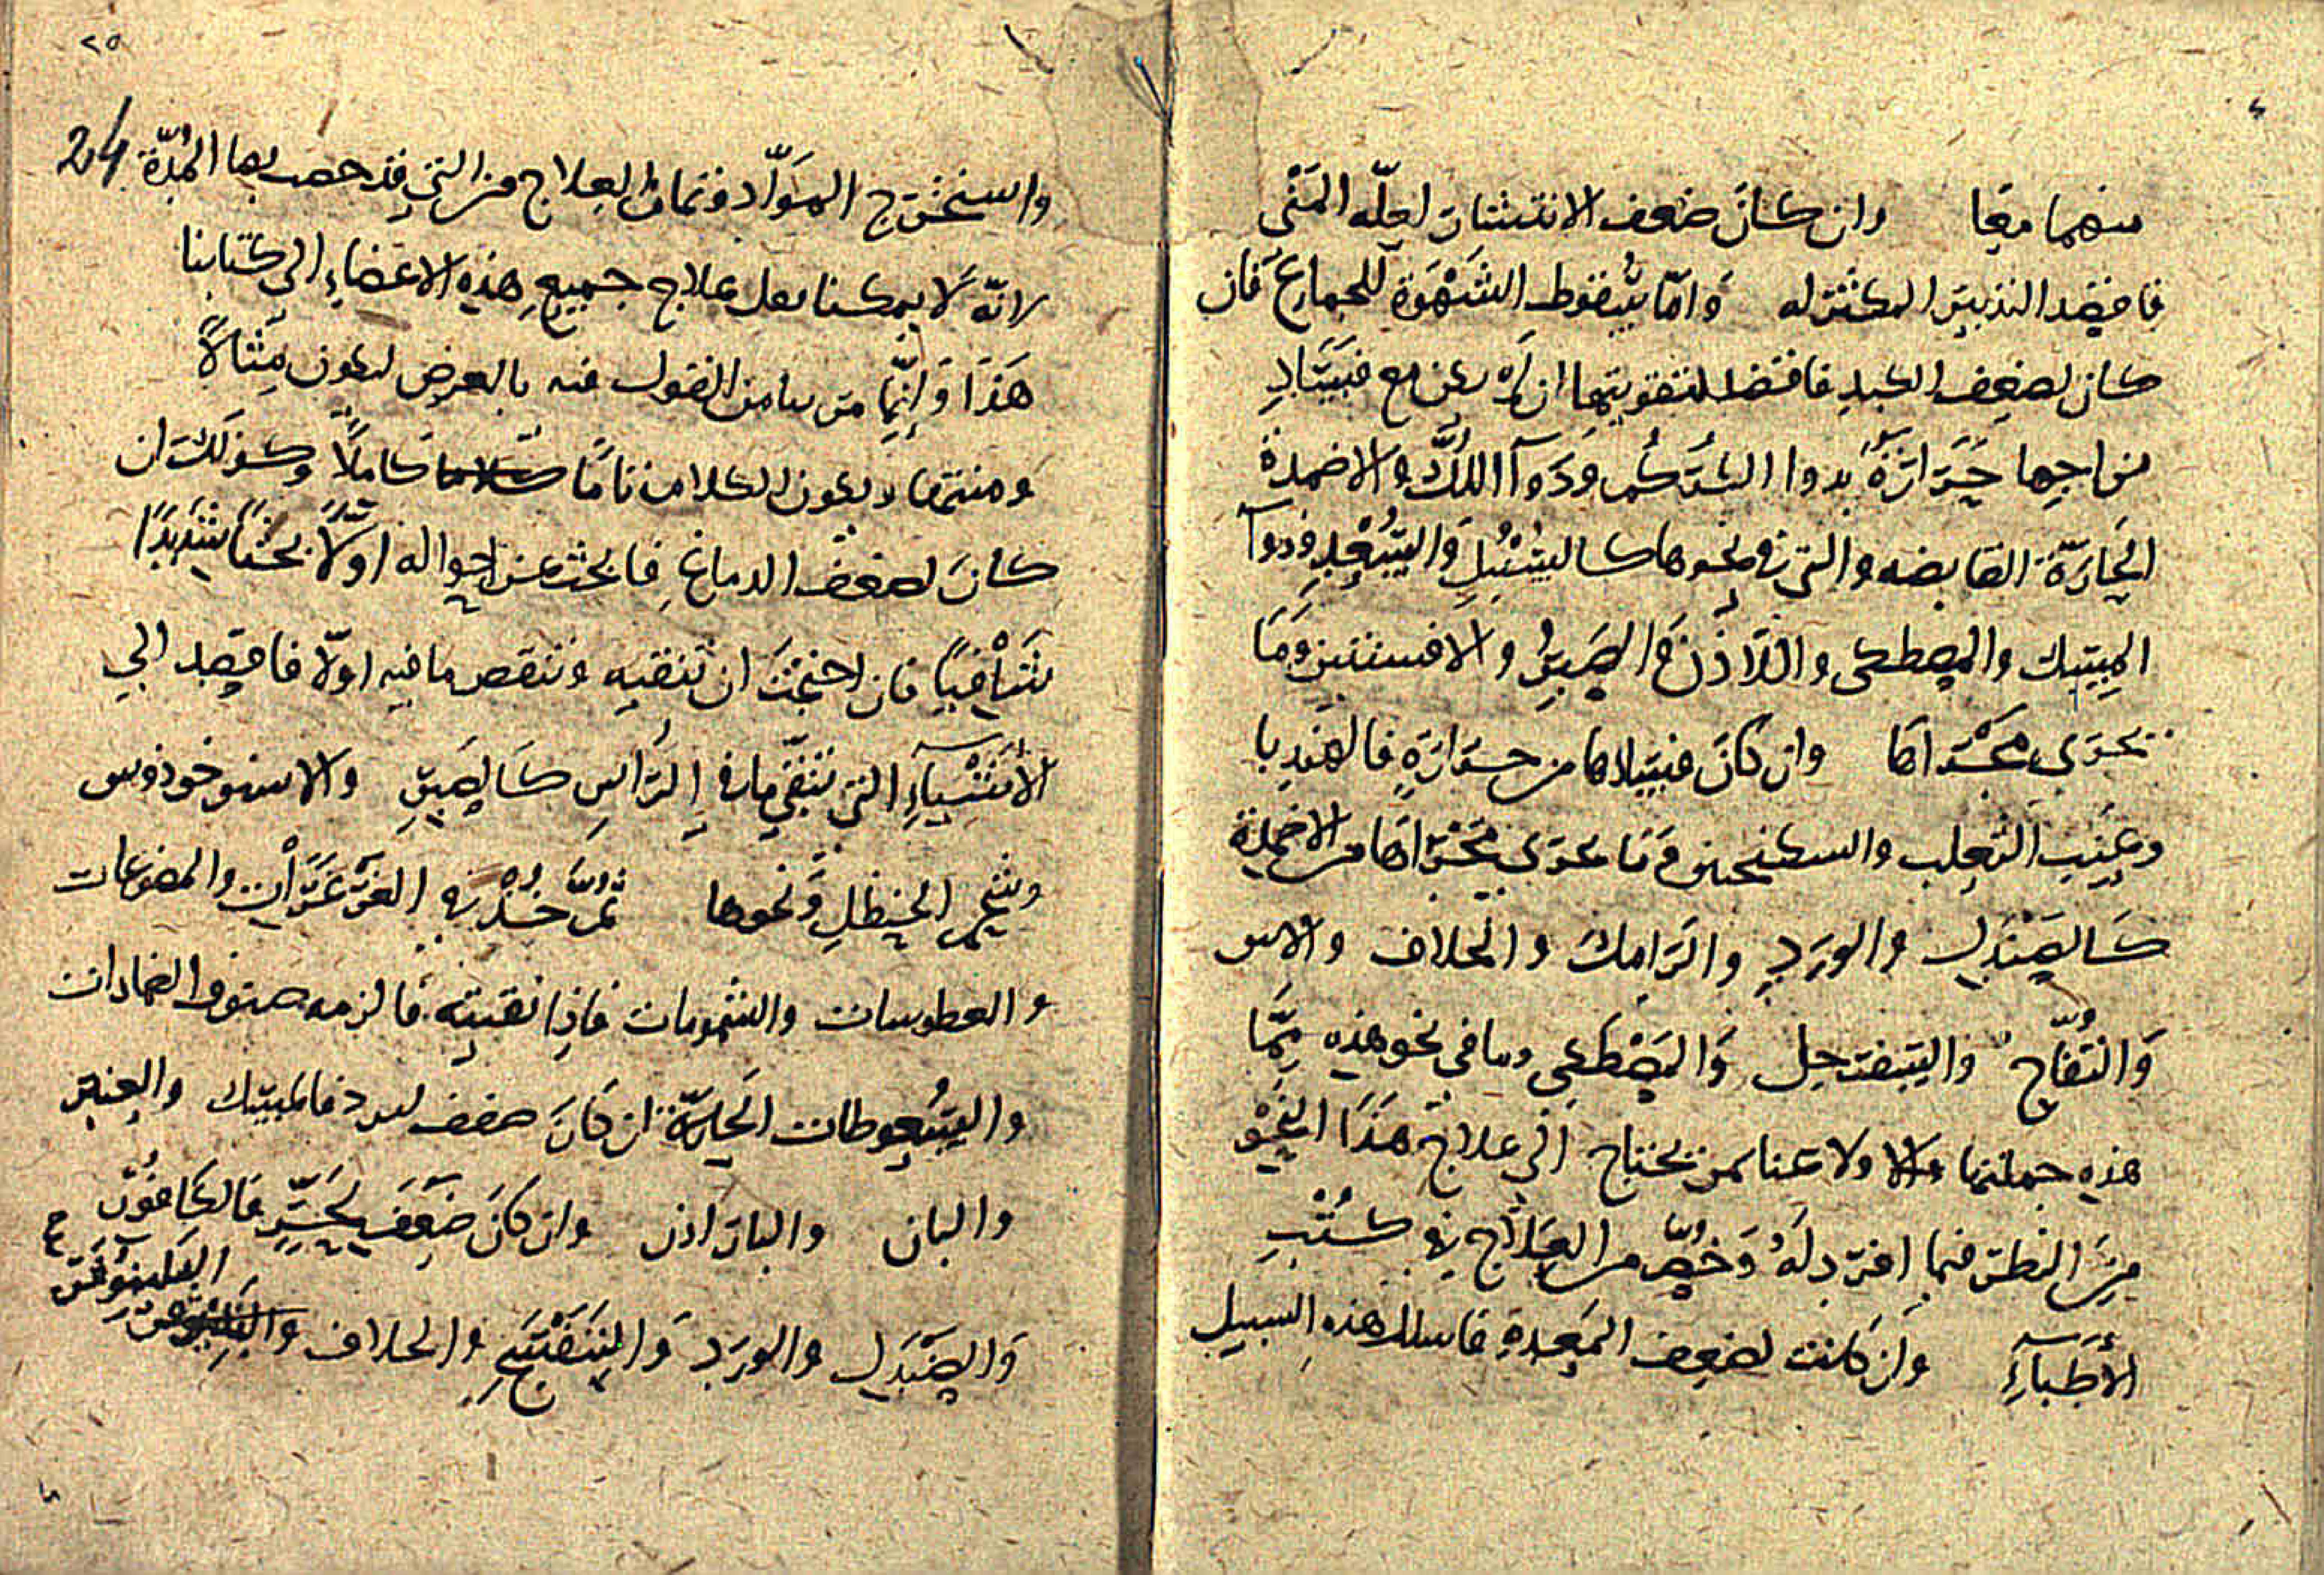 منهما معا وان كان ضعف الانتشار لعلّه المَنْى
فاقصد التدبير المكثر له وَامّا سُقوط الشَهْوَة للجماع فَان
كان لضعف الكبد فاقصد لتقويتها ان لم يكن مع فسَادِ
مزاجها حَرَارَةٌ بدوا الكُركُم وَدَوآ اللُكّ والاضمدة
الحَارّة القابضه والتي في نحوها كالسُنْبُلِ وَالسُعْدِ ودوآ
المِسك والمصطكى واللّاذَن وَالصَبِر والافسنتين وَمَا
يَجرَى مَجْرَاها وان كَانَ فسَادها من حَرَارَةٍ فالهندبا
وعِنَبِ الثعلب والسكنجبين وَمَا يجرَى مَجْرَاهَا من الاضمدة
كَالصَنْدَل والورَدِ والرَامِك والخلاف والاس
وَالتُفّاح والسَفَرجل وَالمَصْطكى وما في نحو هذه مِمَّا
هذه جملتها ولا عنا لمن يحتاج الى علاج هَذَا النَحْو
مِنَ النظر فيما افرَد لَهُ وَخُصّ من العِلَاج في كُتْبِ
الأَطِبآءِ وَان كانت لضعف المَعِدَةِ فاسلك هذه السبيل
٢٥
24
واستخرج الموَادّ وتمام العلاج من التي قد خصت بها المُدّة
لانّه لا يمكنا نقل علاج جميع هذه الاعضاءِ الى كتابنا
هَذَا وَانّمَا مر بنا من القول فيه بالعرض ليكون مِثالاً
ومنتها وليكون الكلام تامًا كاملاً وكذلك ان
كانَ لضعف الدماغ فابحث عن احواله اوّلاً بحثًا شديدًا
شَافيًا فان احتجتَ ان تنقيه وتنقص ما فيه اوّلا فاقصد الى
الأَشْيآءِ التي تنقّي ما في الرَاسِ كَالصَبِرِ والاسطوخوذوس
وشحم الحنظلِ وَنحوها ثُمَّ خُذْ في الغَرْغَرَات والمضوغات
والعطوسات والشمومات فاذا نقيته فالزمه صنوف الضمادات
والسُعوطات الحَارّة ان كَانَ ضعف لبرد فالمسك والعنبر
والبان والباداذن وان كَانَ ضَعَف لحَرٍّ فالكافُور
وَالصَنْدَل والورَد وَالبَنَفْسَجِ والخلاف والنيلوفر
النيلوفر